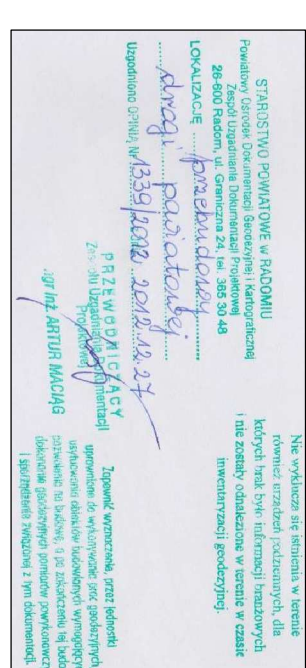 STAROSTWO POWIATOWE w RADOMIU
Powiatowy Ośrodek Dokumentacji Geodezyjnej i Kartograficznej
Zespół Uzgadniania Dokumentacji Projektowej
26-600 Radom, ul. Graniczna 24, tel. 365 30 48
LOKALIZACJĘ przebudowy
drogi powiatowej
Uzgodniono OPINIĄ Nr 1339/2012 2012.12.27
PRZEWODNICZĄCY
Zespołu Uzgadniania Dokumentacji
Projektowej
mgr inż. ARTUR MACIĄG
Nie wyklucza się istnienia w terenie
również urządzeń podziemnych, dla
których brak było informacji branżowych
i nie zostały odnalezione w terenie w czasie
inwentaryzacji geodezyjnej.
Zapewnić wyznaczenie, przez jednostki
uprawnione do wykonywania prac geodezyjnych
usytuowania obiektów budowlanych wymagający
pozwolenia na budowę, a po zakończeniu tej budo
dokonanie geodezyjnych pomiarów powykonawcz
i sporządzenie związanej z tym dokumentacji.